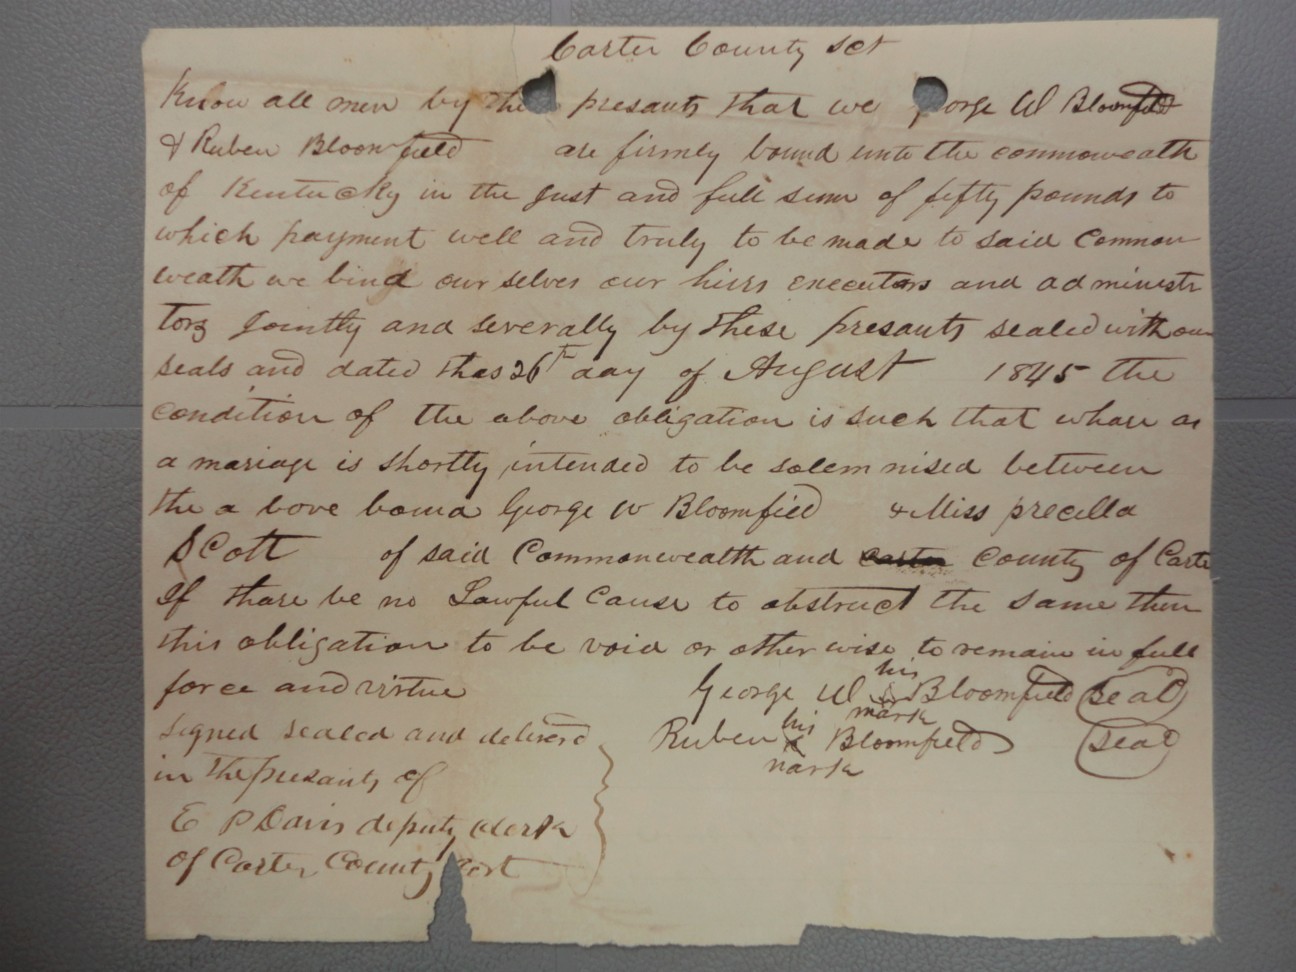 Carter County sct
Know all men by the presants that we George W Bloomfield
& Ruben Bloomfield are firmly bound unto the commonweath
of Kentucky in the Just and full sum of fifty pounds to
which payment well and truly to be made to said Common
weath we bind our selves our hiirs executors and administr
tors Jointly and severally by these presants sealed with our
seals and dated thas 26th day of August 1845 the
condition of the above obligation is such that whare as
a mariage is shortly intended to be solemnised between
the a bove bound George W Bloomfield & Miss precilla
Scott of said Commonwealth and carter county of Carte
If thare be no Lawful Cause to obstruct the same then
this obligation to be void or other wise to remain in full
force and virtue
George W his mark Bloomfield seal
signed sealed and deliverd
Ruben his x mark Bloomfield seal
in the presants of
E P Davis deputy clerk
of Carter County Cort